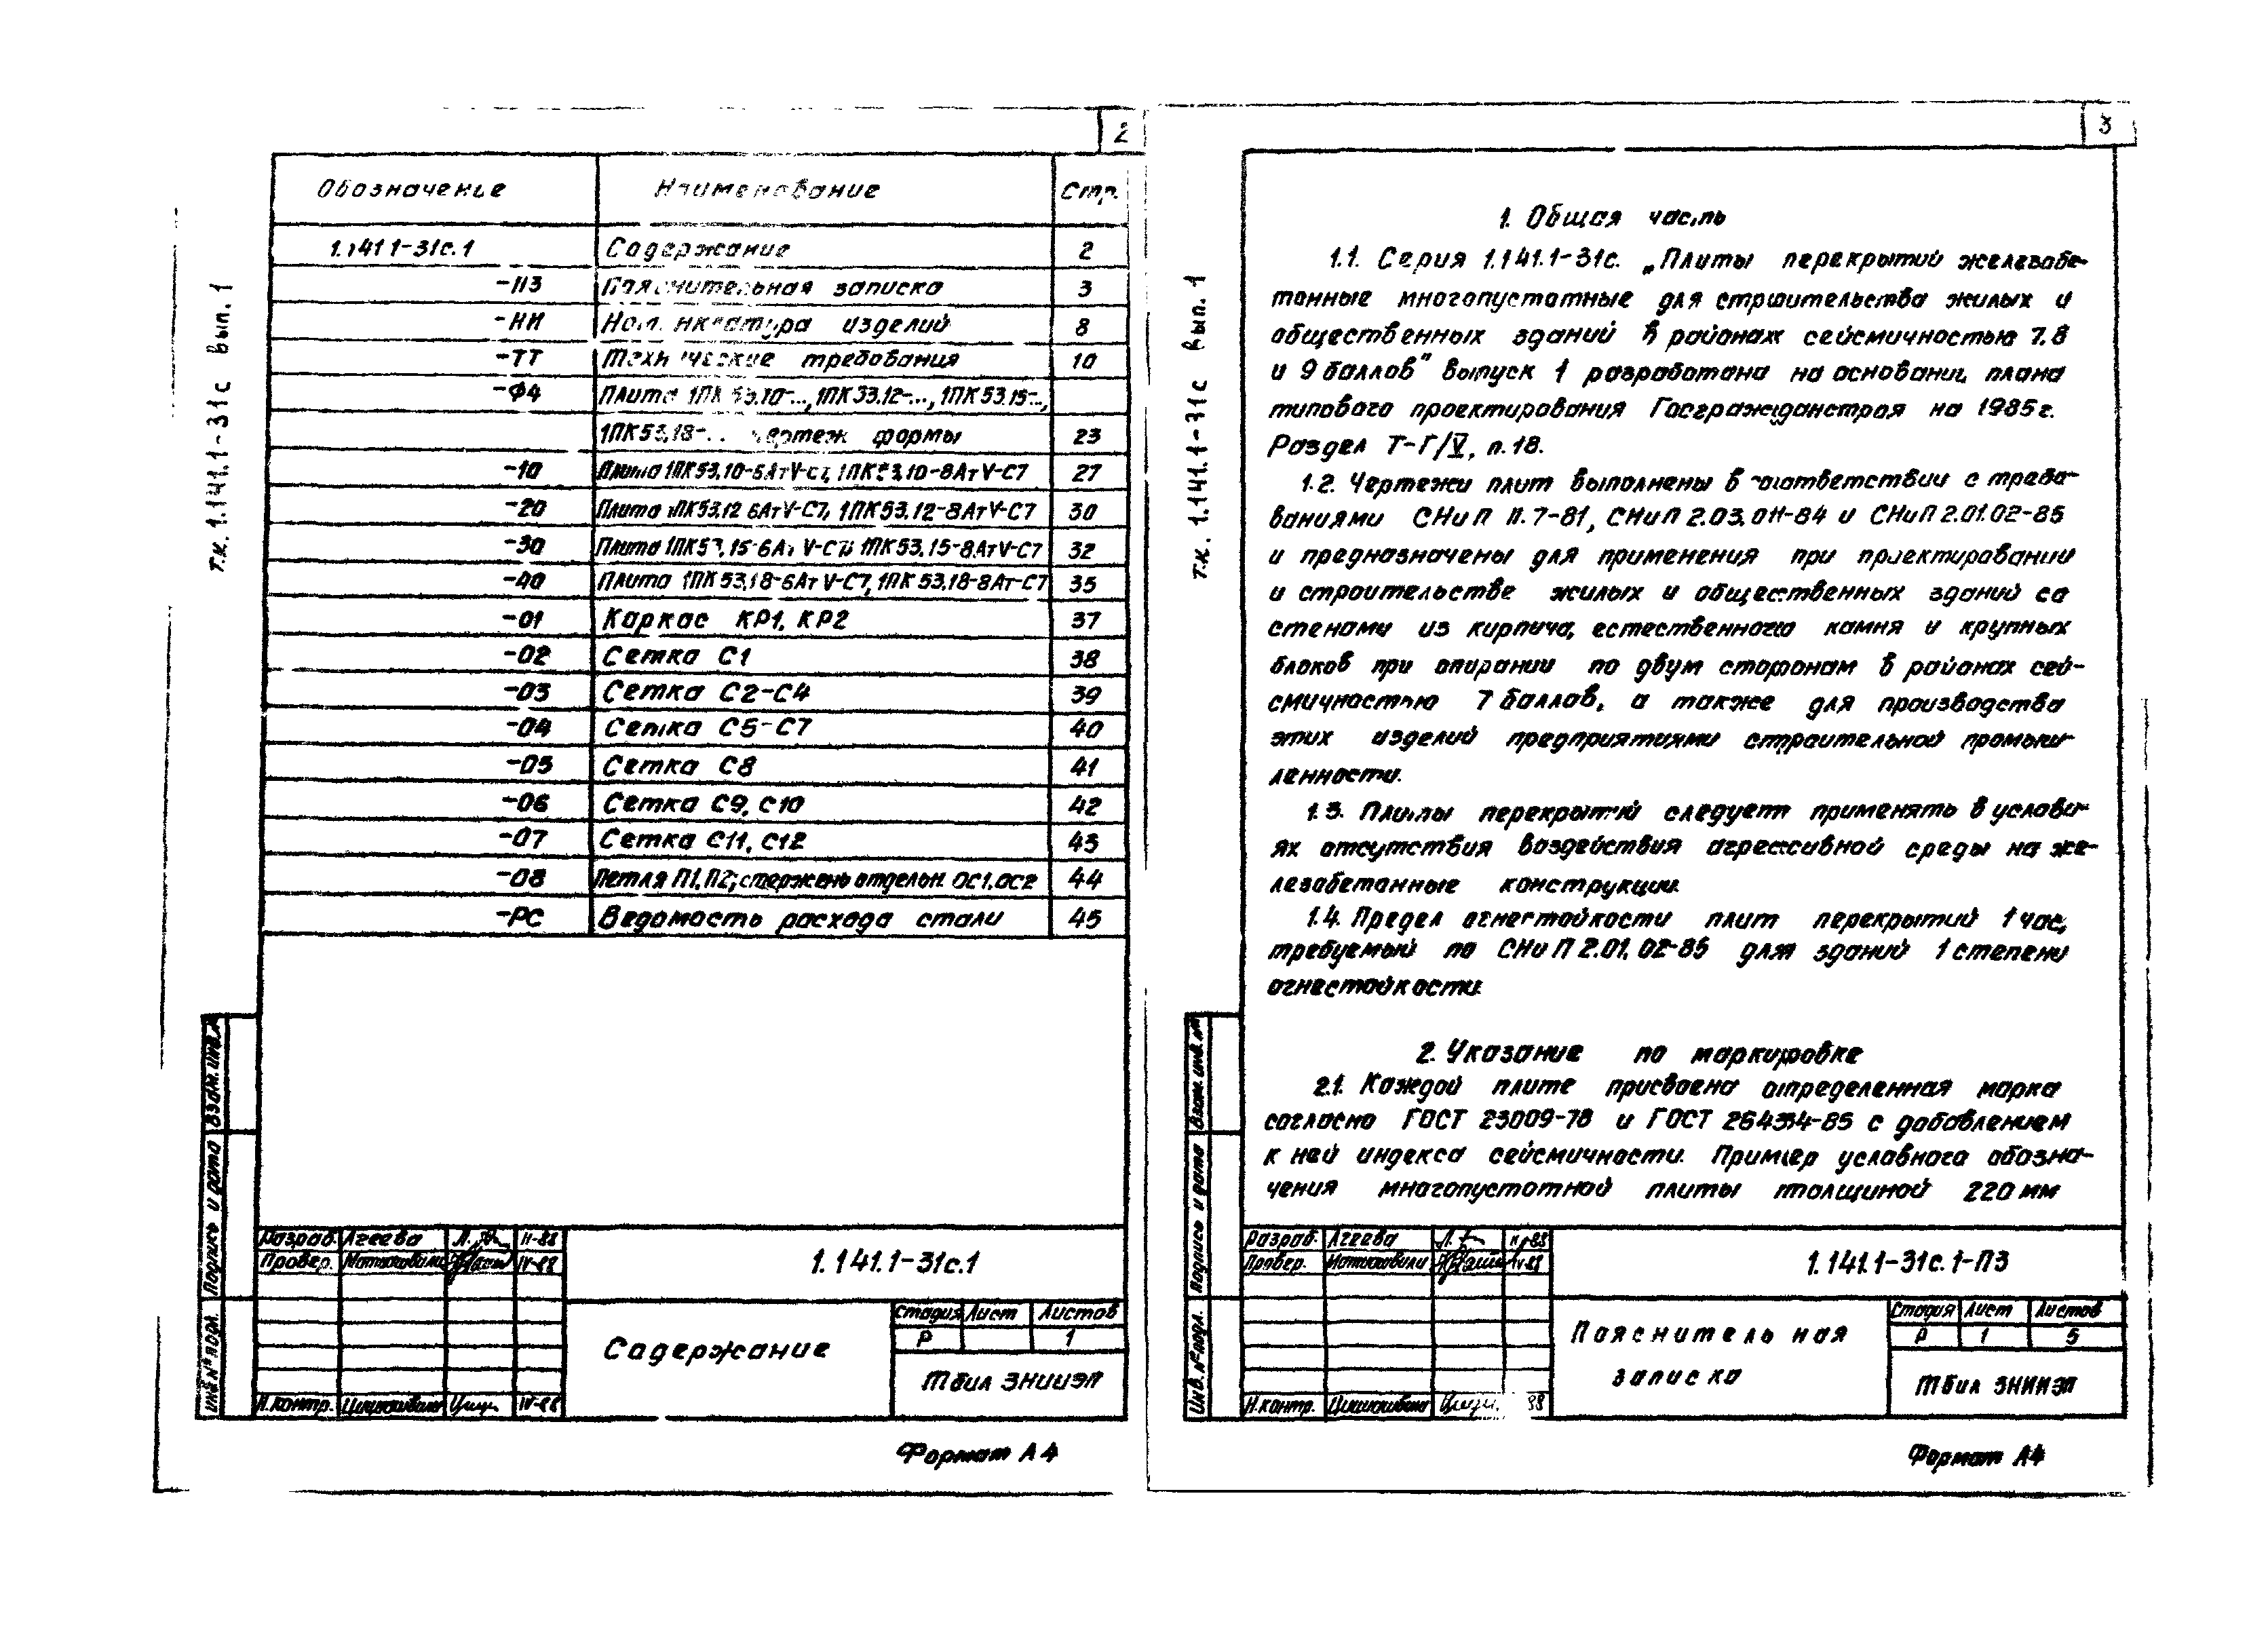 2
Обозначение Наименование Стр.
1.141.1-31с.1 Содержание 2
-ПЗ Пояснительная записка 3
-НИ Номенклатура изделий 8
-ТТ Технические требования 10
-Ф4 Плита 1ПК 53.10-..., 1ПК 53.12-..., 1ПК 53.15-...,
1ПК53.18-... чертеж формы 23
-10 Плита 1ПК53.10-6АтV-С7, 1ПК53.10-8АтV-С7 27
-20 Плита 1ПК53.12-6АтV-С7, 1ПК53.12-8АтV-С7 30
-30 Плита 1ПК53.15-6АтV-С7, 1ПК53.15-8АтV-С7 32
-40 Плита 1ПК53.18-6АтV-С7, 1ПК53.18-8Ат-С7 35
-01 Каркас КР1, КР2 37
-02 Сетка С1 38
-03 Сетка С2-С4 39
-04 Сетка С5-С7 40
-05 Сетка С8 41
-06 Сетка С9, С10 42
-07 Сетка С11, С12 43
-08 Петля П1, П2; стержень отдельн. ОС1, ОС2 44
-РС Ведомость расхода стали 45
т.к. 1.141.1-31с вып. 1
Взам. инв. №
Подпись и дата
Инв. № подл.
Разраб. Агеева IV-88
Провер. IV-88
Н.контр. IV-88
1.141.1-31с.1
Содержание
Стадия Лист Листов
Р 1
ТбилЗНИИЭП
Формат А4
3
т.к. 1.141.1-31с вып. 1
1. Общая часть
1.1. Серия 1.141.1-31с. „Плиты перекрытий железобе-
тонные многопустотные для строительства жилых и
общественных зданий в районах сейсмичностью 7, 8
и 9 баллов" выпуск 1 разработана на основании плана
типового проектирования Госгражданстроя на 1985г.
Раздел Т-Г/V, п.18.
1.2. Чертежи плит выполнены в соответствии с требо-
ваниями СНиП II.7-81, СНиП 2.03.01-84 и СНиП 2.01.02-85
и предназначены для применения при проектировании
и строительстве жилых и общественных зданий со
стенами из кирпича, естественного камня и крупных
блоков при опирании по двум сторонам в районах сей-
смичностью 7 баллов, а также для производства
этих изделий предприятиями строительной промыш-
ленности.
1.3. Плиты перекрытий следует применять в услови-
ях отсутствия воздействия агрессивной среды на же-
лезобетонные конструкции.
1.4. Предел огнестойкости плит перекрытий 1 час,
требуемый по СНиП 2.01.02-85 для зданий 1 степени
огнестойкости.
2. Указание по маркировке
2.1. Каждой плите присвоена определенная марка
согласно ГОСТ 23009-78 и ГОСТ 26434-85 с добавлением
к ней индекса сейсмичности. Пример условного обозна-
чения многопустотной плиты толщиной 220 мм
Взам. инв. №
Подпись и дата
Инв. № подл.
Разраб. Агеева IV-88
Провер. IV-88
Н.контр. 88
1.141.1-31с.1-ПЗ
Пояснительная
записка
Стадия Лист Листов
Р 1 5
ТбилЗНИИЭП
Формат А4